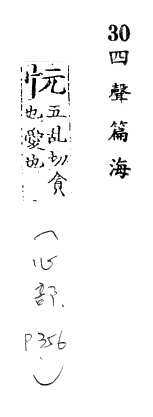 30四聲篇海
忨五乱切貪
也愛也
(心部.P356)